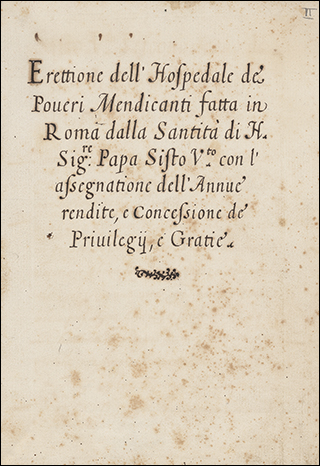 11
Erettione dell' Hospedale de'
Poveri Mendicanti fatta in
Roma dalla Santità di N.
Sig:re Papa Sisto V.to con l'
assegnatione dell' Annue
rendite, e Concessione de
Privilegij, e Gratie.